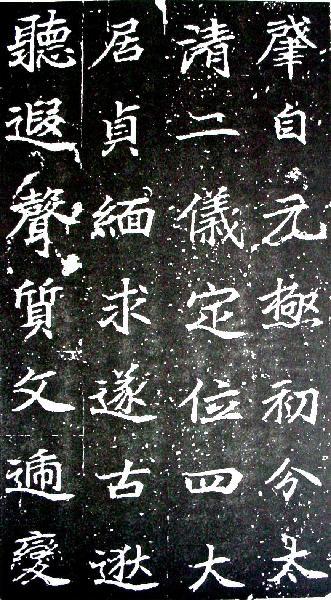 肇自元極初分太
清二儀定位四大
居貞緬求遂古逖
聽遐聲質文逓變